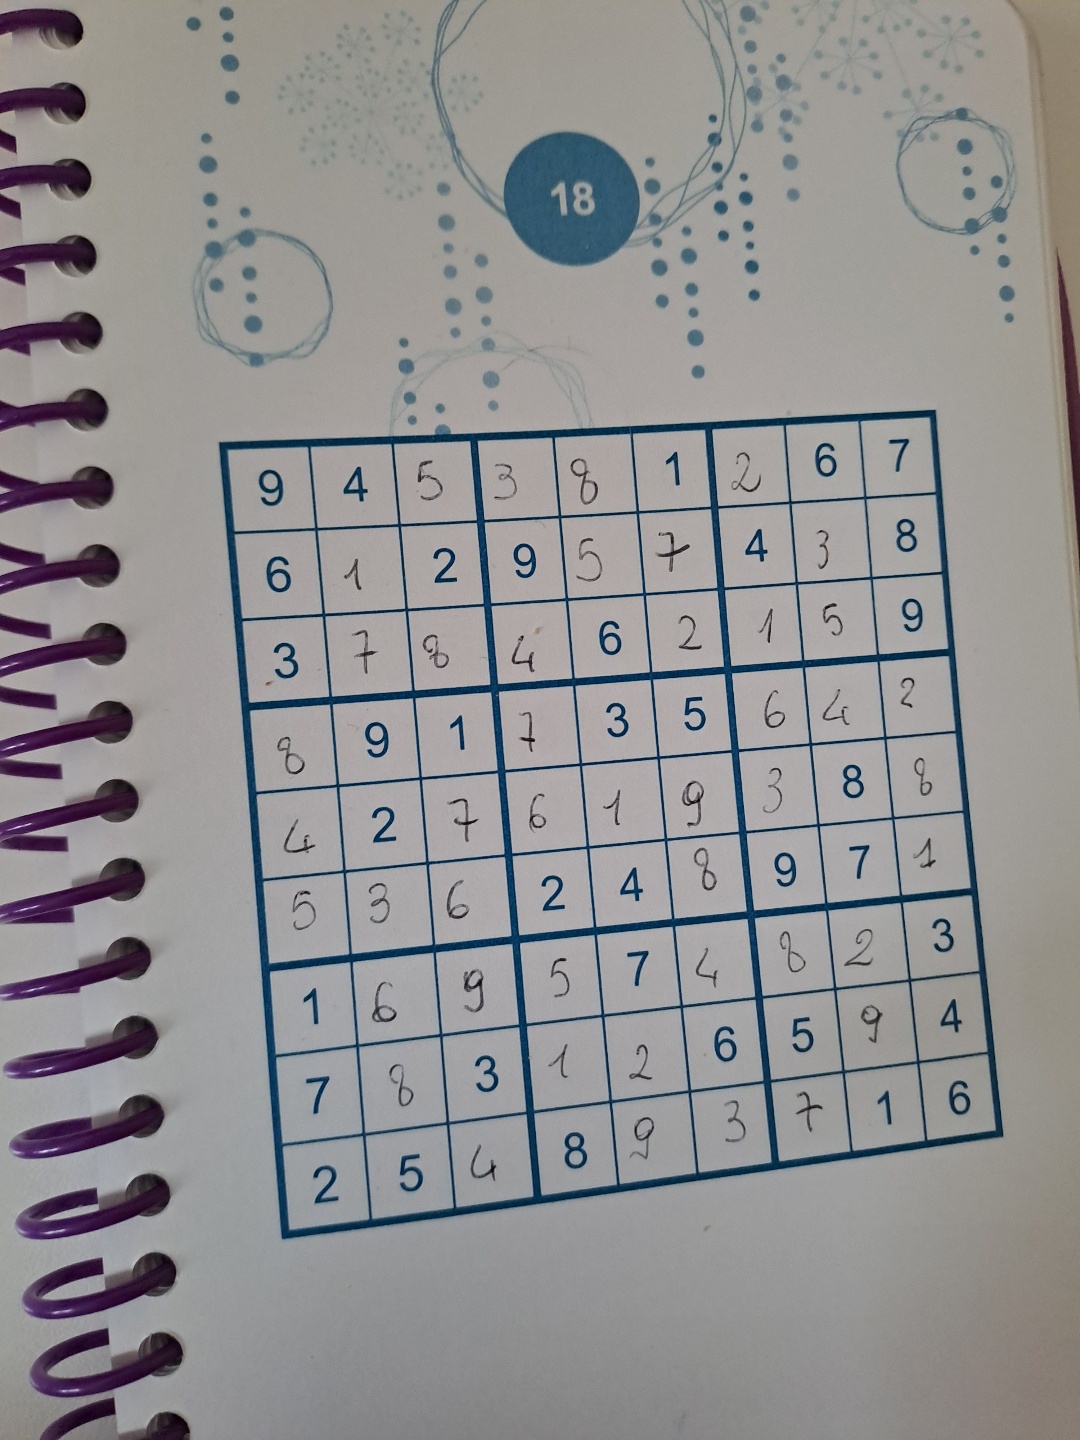 18
9 4 5 3 8 1 2 6 7
6 1 2 9 5 7 4 3 8
3 7 8 4 6 2 1 5 9
8 9 1 7 3 5 6 4 2
4 2 7 6 1 9 3 8 8
5 3 6 2 4 8 9 7 1
1 6 9 5 7 4 8 2 3
7 8 3 1 2 6 5 9 4
2 5 4 8 9 3 7 1 6